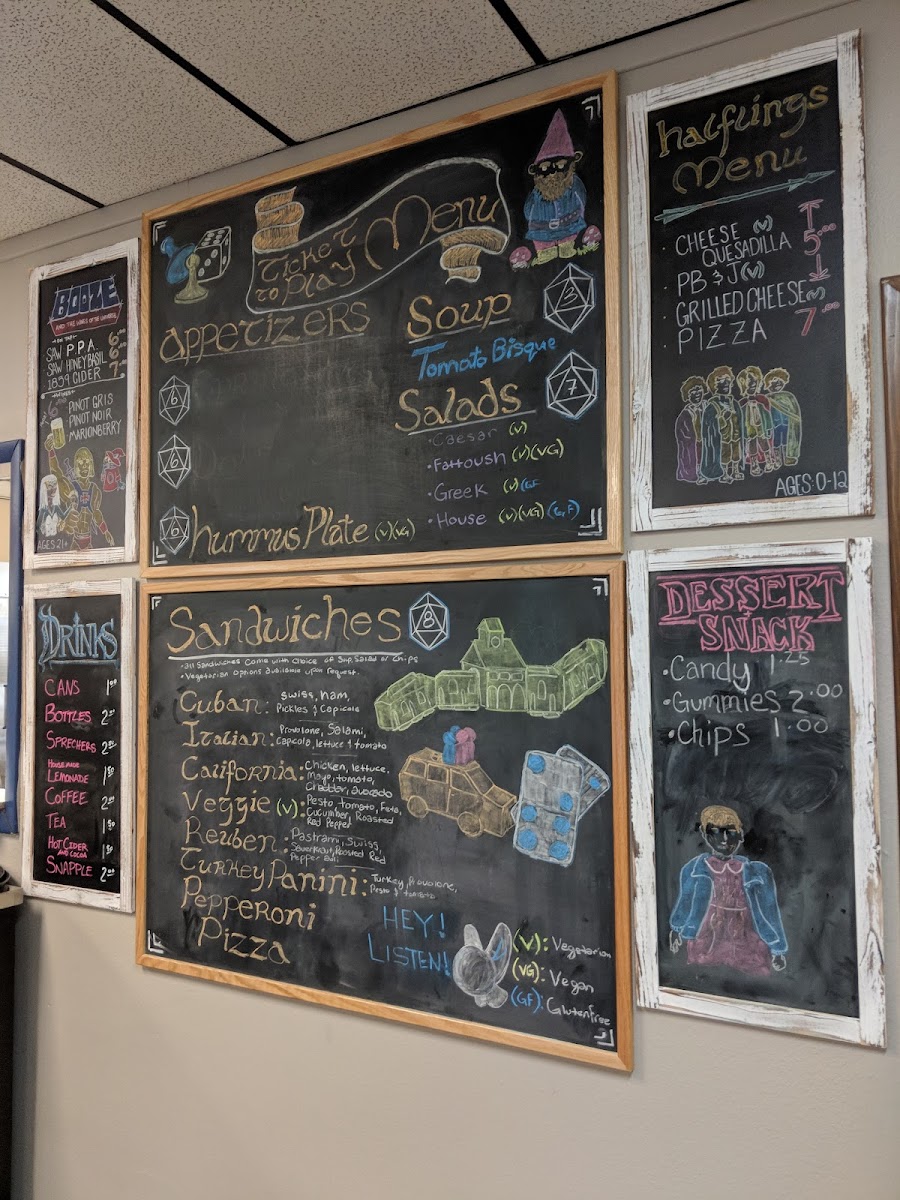 BOOZE
AND THE LORDS OF THE UNIVERSE
ON TAP
SAW P.P.A. 6.
SAW HONEY BASIL 6.
1859 CIDER 7.
PINOT GRIS
PINOT NOIR
MARIONBERRY
AGES 21+
DRINKS
CANS 1.00
BOTTLES 2.50
SPRECHERS 2.50
HOUSEMADE
LEMONADE 1.50
COFFEE 2.50
TEA 1.50
HOT CIDER
AND COCOA 1.50
SNAPPLE 2.00
Ticket
to Play
Menu
Appetizers
6
6
6
Hummus Plate (V)(VG)
Soup
3
Tomato Bisque
Salads
7
•Caesar (V)
•Fattoush (V)(VG)
•Greek (V)(GF
•House (V)(VG)(GF)
Sandwiches 8
•All Sandwiches Come with choice of Soup, Salad or Chips
•Vegetarian options available upon request.
Cuban: Swiss, ham,
Pickles & Capicola
Italian: Provolone, Salami,
Capicola, lettuce & tomato
California: Chicken, lettuce,
Mayo, tomato,
Cheddar, avocado
Veggie (V): Pesto, tomato, Feta,
Cucumber, Roasted
Red Pepper
Reuben: Pastrami, Swiss,
Sauerkraut, Roasted Red
Pepper
Turkey Panini: Turkey, Provolone,
Pesto & tomato
Pepperoni
Pizza
HEY!
LISTEN!
(V): Vegetarian
(VG): Vegan
(GF): Glutenfree
halflings
Menu
CHEESE (V)
QUESADILLA
PB & J (V)
5.00
GRILLED CHEESE (V)
PIZZA 7.00
AGES: 0-12
DESSERT
SNACK
•Candy 1.25
•Gummies 2.00
•Chips 1.00